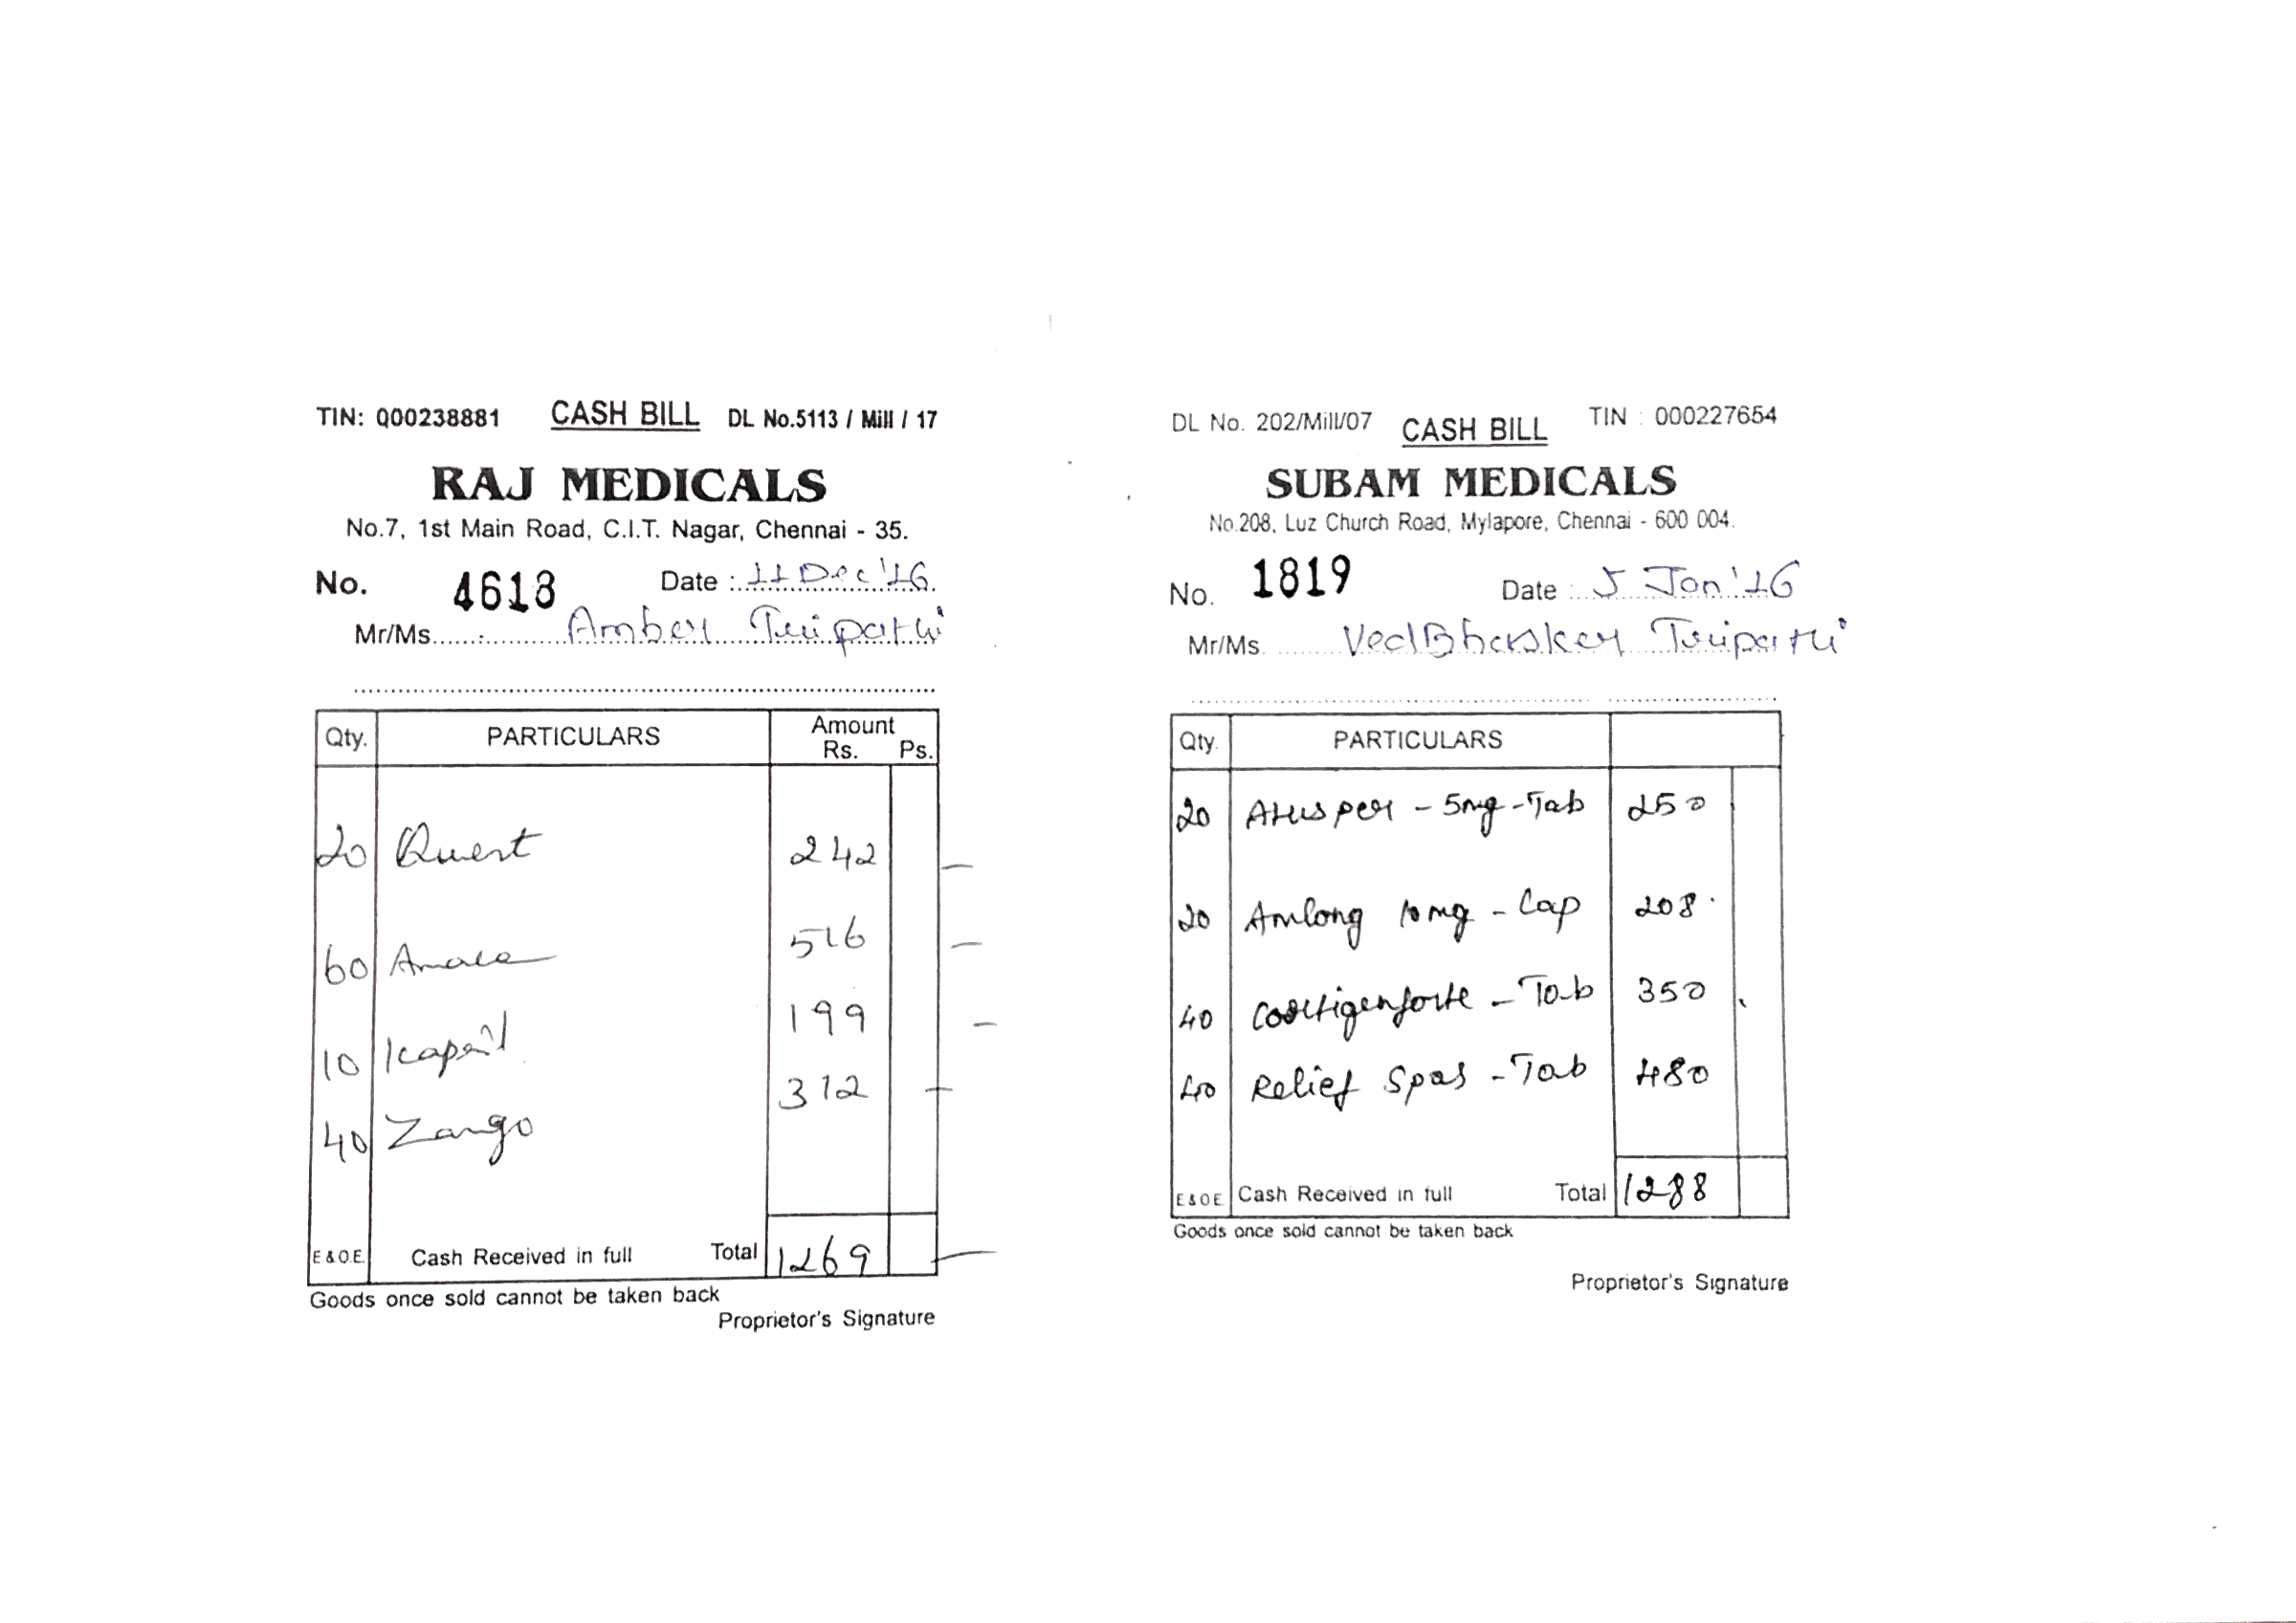 TIN: Q00238881 CASH BILL DL No.5113 / Mill / 17
RAJ MEDICALS
No.7, 1st Main Road, C.I.T. Nagar, Chennai - 35.
No. 4618 Date : 11 Dec '16
Mr/Ms. Amber Tripathi
Qty. PARTICULARS Amount
Rs. Ps.
20 Quent 242
60 516
10 199
40 Zango 312
E & O.E. Cash Received in full Total 1269
Goods once sold cannot be taken back
Proprietor's Signature
DL No. 202/Mill/07 CASH BILL TIN : 000227654
SUBAM MEDICALS
No.208, Luz Church Road, Mylapore, Chennai - 600 004.
No. 1819 Date : 5 Jan '16
Mr/Ms. VedBhasker Tripathi
Qty. PARTICULARS
20 - 5mg - Tab 250
20 Amlong 10mg - Cap 208
40 - Tab 350
40 Relief Spas - Tab 480
E & O.E. Cash Received in full Total 1288
Goods once sold cannot be taken back
Proprietor's Signature